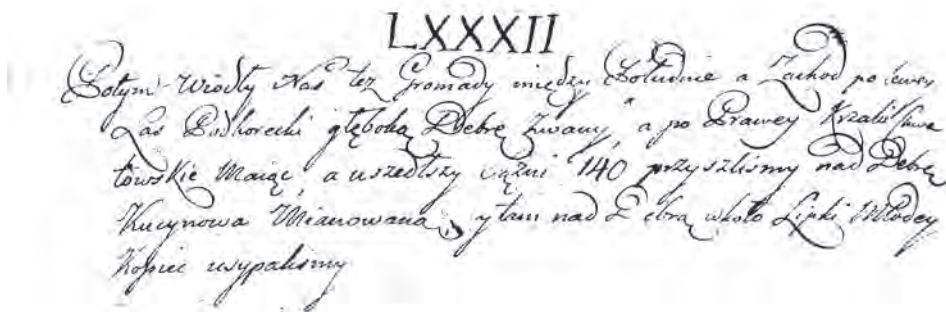 LXXXII
Potym Wiodły Nas też Gromady między Południe a Zachod po lewey
Las Podhorecki głęboką Debrę zwany, a po Prawey Krzaki
towskie Maiąc, a uszedłszy sążni 140 przyszliśmy nad Debrę
Kucynowa Mianowaną, y tam nad Debrą wkoło Lipki Młodey
Kopiec usypaliśmy